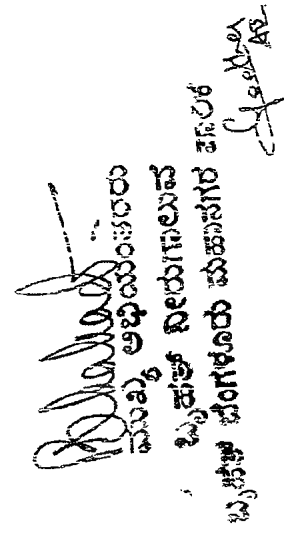 ಮುಖ್ಯ ಅಭಿಯಂತರರು
ಬೃಹತ್ ನೀರುಗಾಲುವೆ
ಬೃಹತ್ ಬೆಂಗಳೂರು ಮಹಾನಗರ ಪಾಲಿಕೆ